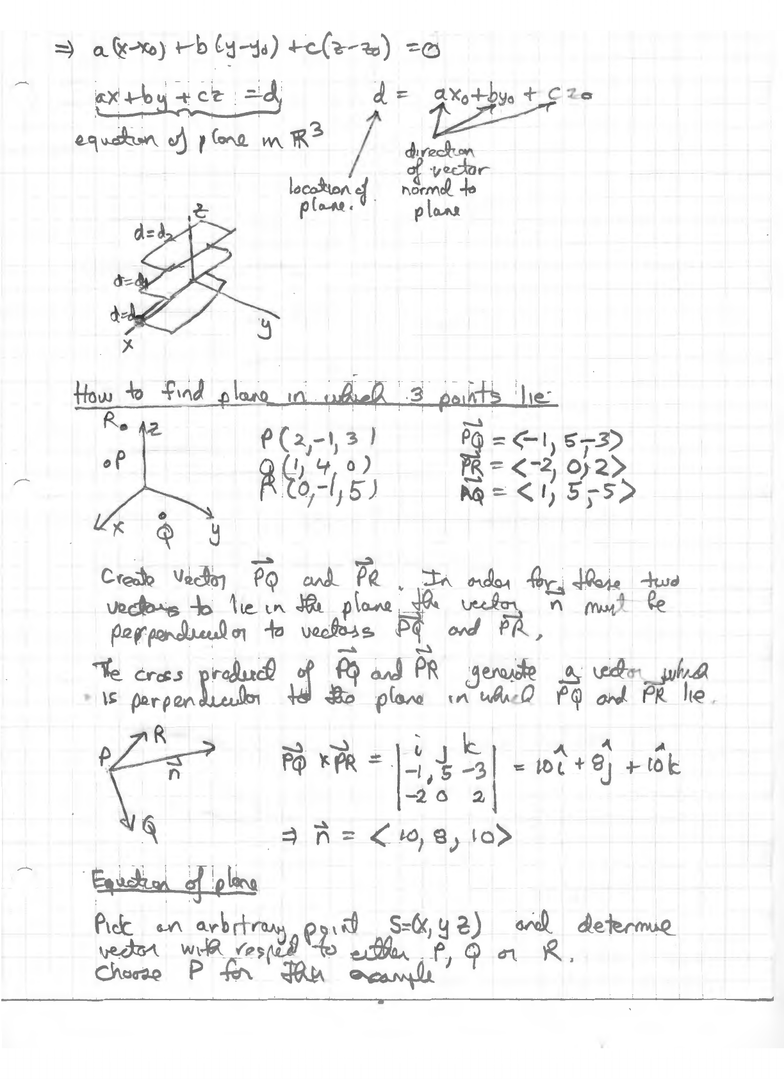 ⇒ a(x-x₀) + b(y-y₀) + c(z-z₀) = 0
ax + by + cz = d
d = ax₀ + by₀ + cz₀
equation of plane in ℝ³
location of
plane.
direction
of vector
normal to
plane
z
d=d₂
d=d₁
d=d
y
x
How to find plane in which 3 points lie
R
z
P
x
Q
y
P(2,-1,3)
Q(1,4,0)
R(0,-1,5)
PQ = <-1, 5,-3>
PR = <-2, 0,2>
RQ = <1, 5,-5>
Create vector PQ and PR. In order for these two
vectors to lie in the plane the vector n must be
perpendicular to vectors PQ and PR,
The cross product of PQ and PR generate a vector which
is perpendicular to the plane in which PQ and PR lie.
P
R
n
Q
PQ × PR = | i j k | = 10i + 8j + 10k
-1, 5 -3
-2 0 2
⇒ n = <10, 8, 10>
Equation of plane
Pick an arbitrary point S=(x, y z) and determine
vector with respect to either P, Q or R.
Choose P for this example